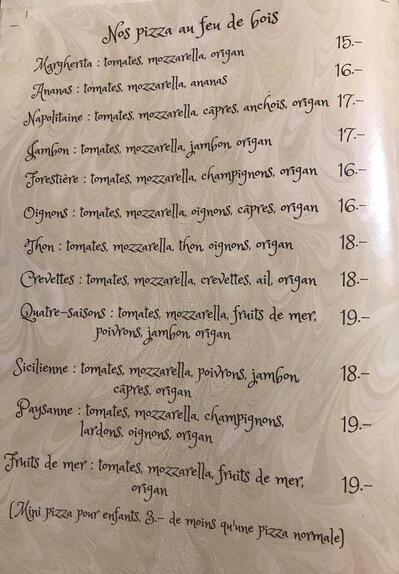 Nos pizza au feu de bois
Margherita : tomates, mozzarella, origan 15.-
Ananas : tomates, mozzarella, ananas 16.-
Napolitaine : tomates, mozzarella, câpres, anchois, origan 17.-
Jambon : tomates, mozzarella, jambon, origan 17.-
Forestière : tomates, mozzarella, champignons, origan 16.-
Oignons : tomates, mozzarella, oignons, câpres, origan 16.-
Thon : tomates, mozzarella, thon, oignons, origan 18.-
Crevettes : tomates, mozzarella, crevettes, ail, origan 18.-
Quatre-saisons : tomates, mozzarella, fruits de mer, 19.-
poivrons, jambon, origan
Sicilienne : tomates, mozzarella, poivrons, jambon, 18.-
câpres, origan
Paysanne : tomates, mozzarella, champignons, 19.-
lardons, oignons, origan
Fruits de mer : tomates, mozzarella, fruits de mer, 19.-
origan
(Mini pizza pour enfants, 3.- de moins qu'une pizza normale)